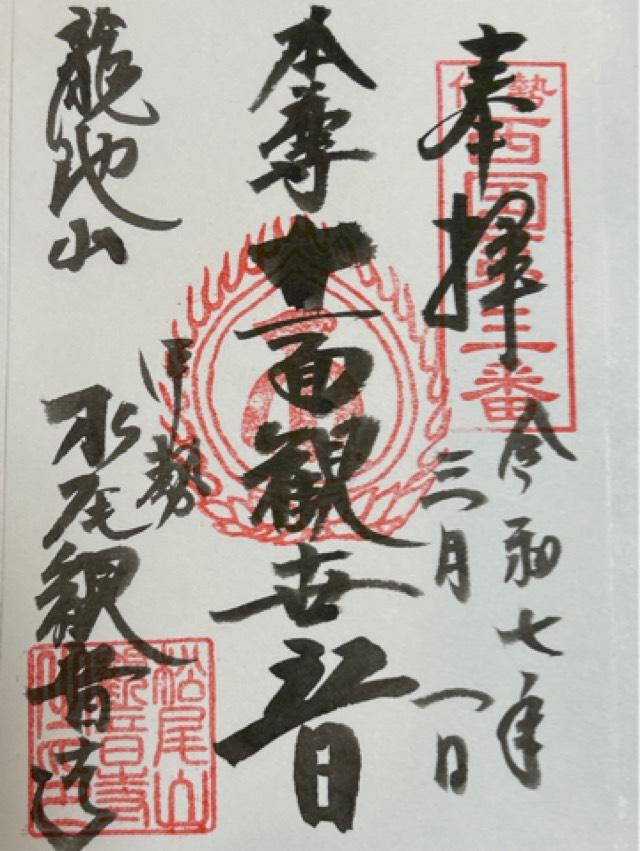 伊勢西国第三番
奉拝
令和七年
三月一日
本尊十一面観世音
龍池山
伊勢
松尾観音寺
松尾山
観音寺